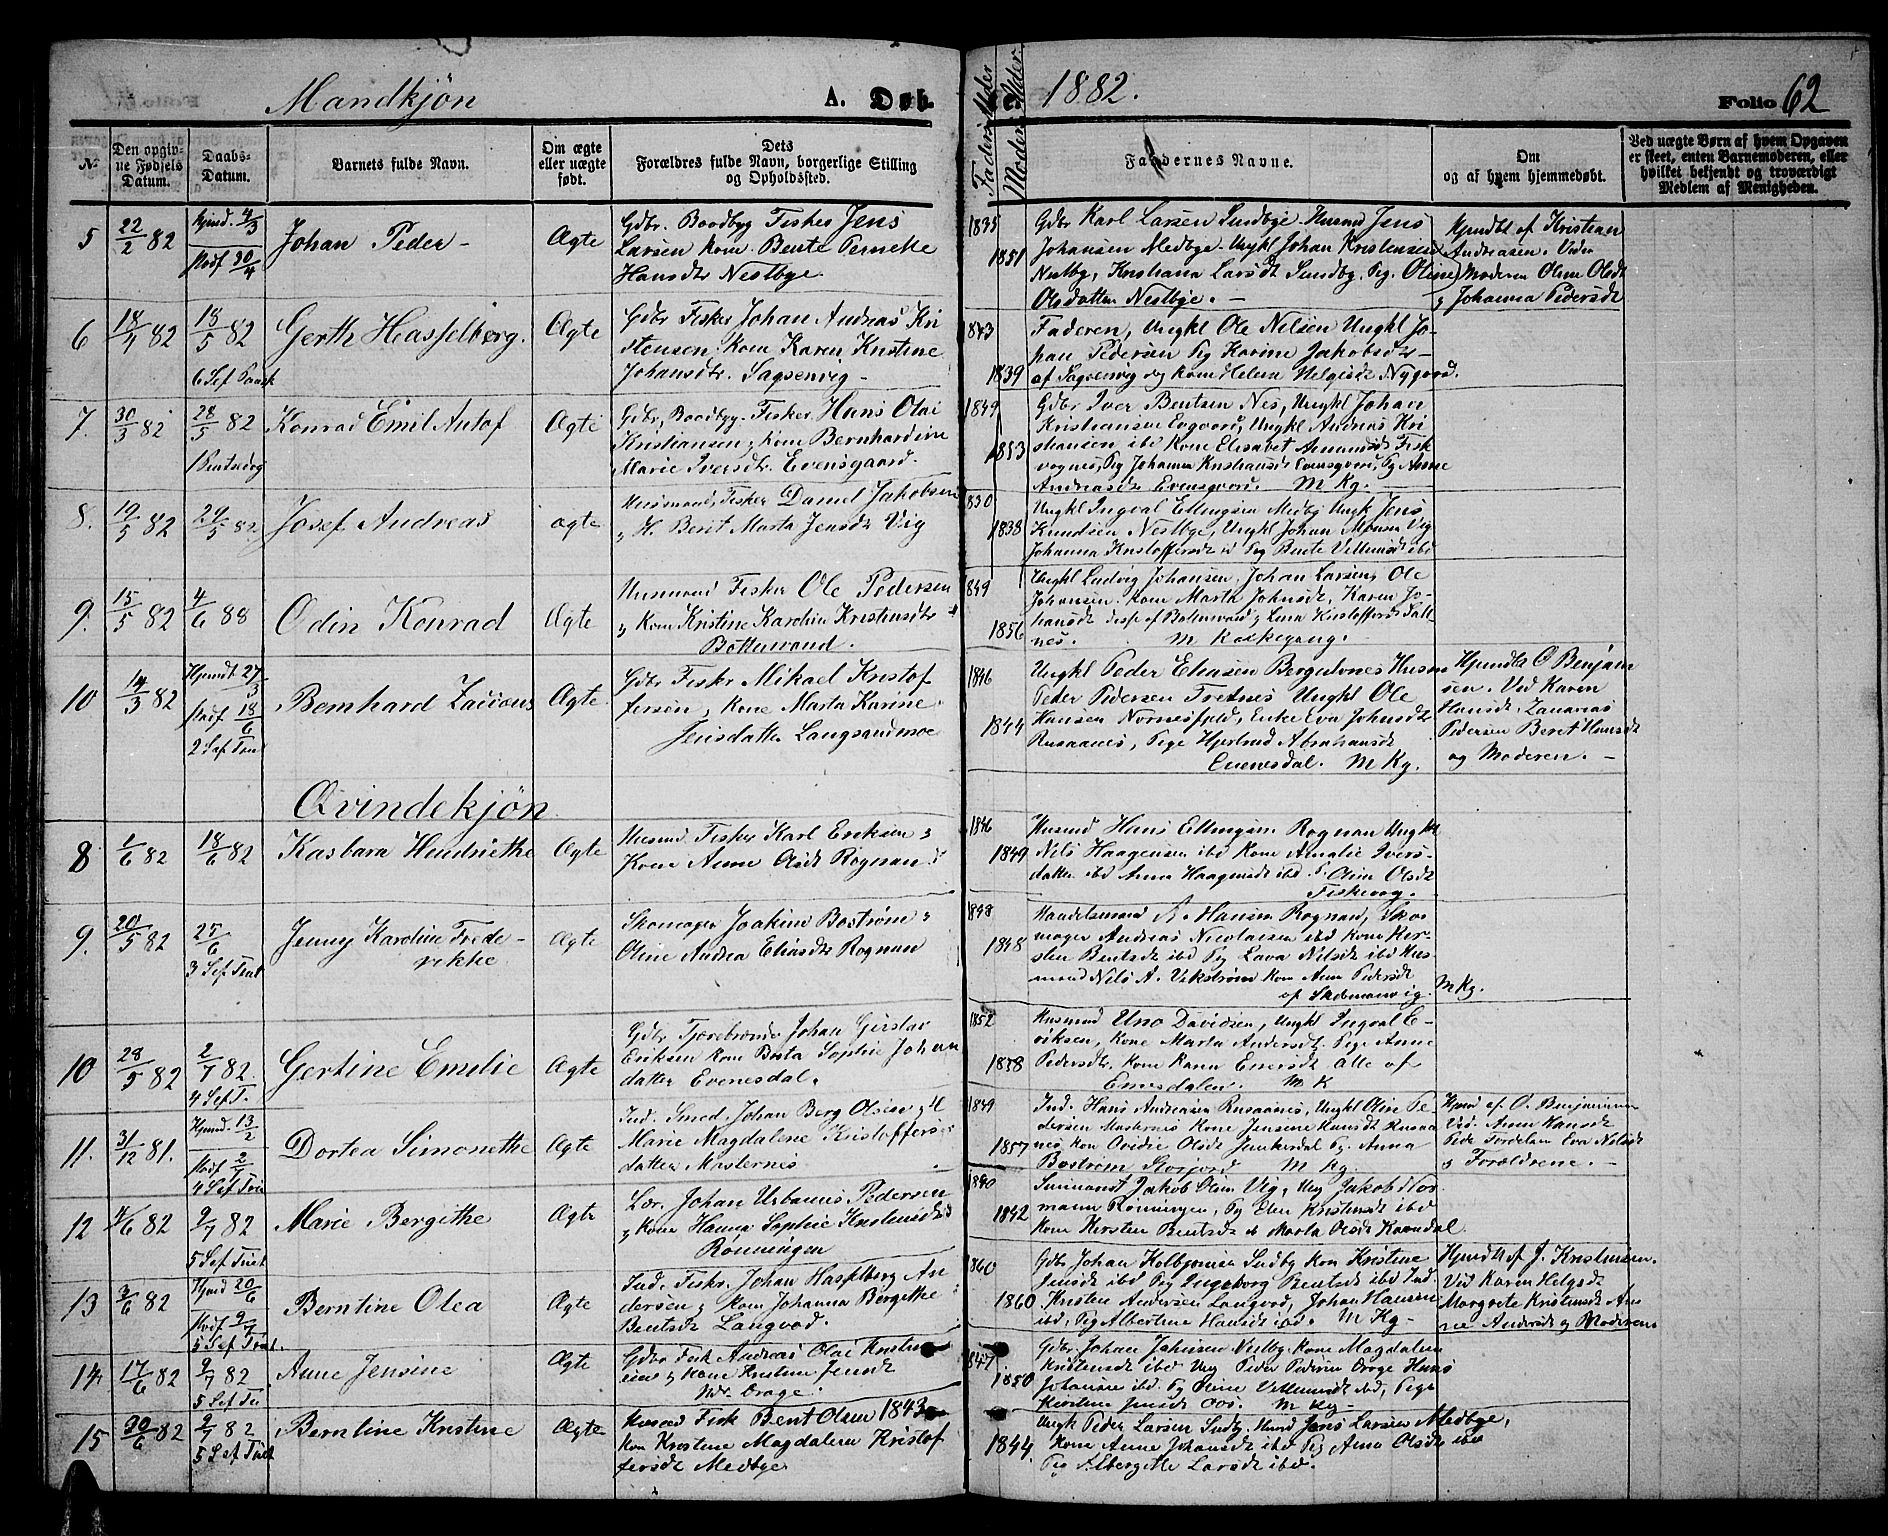 Mandkjön
A. Døb-
te.
1882.
Folio 62
No
Den opgiv-
ne Fødsels
Datum.
Daabs-
Datum.
Barnets fulde Navn.
Om ægte
eller uægte
født.
Dets
Forældres fulde Navn, borgerlige Stilling
og Opholdssted.
Faderens Alder
Moderens Alder.
Faddernes Navne.
Om
og af hvem hjemmedøbt.
Ved uægte Børn af hvem Opgaven
er skeet, enten Barnemoderen, eller
hvilket bekjendt og troværdigt
Medlem af Menigheden.
5
22/2 82
Hjmd. 4/3
Stadf 30/4
Johan Peder
Ægte
Gdbr. Boodbyg Fisker Jens
Larsen kone Bente Pernelle
Hansdtr Nestbye
1835
1851
Gdbr Karl Larsen Sundbye Husmd Jens
Johansen Medbye Ungkl Johan Kristensen
Nestby, Kristiana Larsdt Sundby, Pig. Oline
Olsdatter Nestbye.
Hjmdbt af Kristian
Andreasen. Vidn
Moderen Oline Olsdt
Johanna Pedersdt
6
18/4 82
18/5 82
6 Sef Paask
Gerth Hasselberg.
Ægte
Gdbr Fisker Johan Andreas Kri
stensen, Kone Karen Kristine
Johansdtr. Saxenvig
1843
1839
Faderen, Ungkl Ole Nilsen Ungkl Jo-
han Pedersen Pig Karine Jakobsdtr
af Saxenvig og Kone Helena Helgesdt Nygord.
7.
30/3 82
28/5 82
1 Pintsedag
Konrad Emil Antof
Ægte
Gdbr, Boodbyg. Fisker Hans Olai
Kristiansen, Kone Bernhardine
Marie Iversdtr. Evensgaard.
1849
1853
Gdbr Iver Bentsen Nes, Ungkl Johan
Kristiansen Evgaard, Ungkl Andreas Kri
stiansen ibd Kone Elisabet Amundsdt Fisk
vognes, Pig Johanna Kristiansdt Evensgaard, Pig Anne
Andreasdt Evensgaard. M Kg.
8.
19/5 82
29/5 82.
Josef Andreas
ægte
Husmand, Fisker Daniel Jakobsen
H. Berit Marta Jensdt Vig
1830
1838
Ungkl Ingval Ellingsen Medby Ungk Jens
Knudsen Nestbye, Ungkl Johan Monsen Vig
Johanna Kristoffersdt Pig Bente Vellumsdt ibd
9.
15/5 82
4/6 88
Odin Konrad
Ægte
Husmand Fisker Ole Pedersen
Kone Kristine Karolina Kristensdtr
Bottenvand.
1849
1856
Ungkl Ludvig Johansen, Johan Larsen, Ole
Johansen. Kone Marta Johnsdt, Karen Jo-
hansdt disse af Bottenvand, Lena Kristoffersdt Salt
nes. M Kirkegang.
10
14/3 82
Hjmdt 27/3
Stadf 18/6
2 Sef Trint
Bernhard Zacious
Ægte.
Gdbr Fisker Mikael Kristof
fersen, Kone Marta Karine
Jensdatter Langsandmoe
1846
1844
Ungkl Peder Eliasen Husm
Peder Pedersen Fretnes Ungkl Ole
Hansen Nornesfjeld, Enke Eva Johnsdt
Rusaanes, Pige Hjertrud Abrahamsdt
Evenesdal. M Kg.
Hjmdbt O Benjam
sen. Ved Karen
Hansdt, Zacarias
Pedersen Beret Hansdt
og Moderen.
Qvindekjön
8
1/6 82
18/6 82
Kasbara Hendriethe
Ægte
Husmd Fisker Karl Eriksen
Kone Anna Olsdt Rognan
1846
1849
Husmd Hans Ellingsen Rognan Ungkl
Nils Haagensen ibd Kone Amalie Ivers-
datter ibd Anna Haagensdt ibd Oline Olsdt
Fiskevog.
9.
20/5 82
25/6
3 Sef Trint
Jenny Karoline Frede-
rikke
Ægte
Skomager Joakim Bostrøm
Oline Andrea Eliasdtr Rognan
1848
1848
Handelsmand A. Hansen Rognan, Sko
mager Andreas Nicolaisen ibd Kone Ker-
sten Bentsdt ibd Pig Lava Nilsdt ibd Hus
mand Nils A. Vekstrøm Kone Anne Pedersdt
af Skobmanvig.
M Kg.
10
28/5 82
2/7 82.
4 Sef T.
Gertine Emilie
Ægte
Gdbr Tjærebrænder Johan Gustav
Eriksen Kone Berta Sophie Johan
datter Evenesdal.
1852
1858
Husmand Uno Davidsen, Ungkl Ingval E-
riksen, Kone Marta Andersdt, Pige Anne
Pedersdt. Kone Karen Enersdt Alle af
Enesdalen. M K
11.
31/12 81.
Hjmd. 13/2
Stadf 2/7
4 Sef Trin
Dortea Simonethe
Ægte
Ind. Smed, Johan Berg Olsen, H
Marie Magdalene Kristoffers
datter Masternes
1849
1857
Ind. Hans Andreasen Rusaanes, Ungkl Oline Pe-
dersen Masternes Kone Jensine Hansdt Rusaa
nes Kon Ovidie Olsdt Junkerdal Pg. Anna
Bostrøm Storjord M Kg.
Hjmd af O. Benjaminsen
Ved. Anna Hansdt
Peder Tordelsen Eva Nilsdt
Forældrene.
12
4/6 82
9/7 82
5 Sef Trint
Marie Bergithe
Ægte
Lær. Johan Urbanus Pedersen
Kone Hanna Sophie Kristensdt
Rønningen
1840
1842
Jakob Olsen Vig, Ung Jakob Nor
mann Rönningen, Pg Elen Kristensdt ibd
Kone Kersten Bentsdt Marta Olsdt
13
3/6 82
Hjmd 20/6
Stadf 9/7
5 Sef Trint.
Berntine Olea
Ægte
Ind. Fisker. Johan Hasselberg An
dersen, Kone Johanna Bergithe
Bentsdt Langvad.
1860
1860
Gdbr Johan Kolbjørnsen Sundby Kon Kristine
Jensdt ibd Pig Ingeborg Bentsdt ibd Ind.
Kristen Andersen Langvad, Johan Hansen
ibd, Pig Albertine Hansdt ibd. M Kg
Hjmdt af J. Kristensen.
Vid Karen Helgsdt
Margrete Kristensdt An
ne Andersdt og Moderen
14.
17/6 82
9/7 82
5 Sef Tri
Anne Jensine
Ægte
Gdbr Fisk Andreas Olai Kristen
sen, Kone Kristine Jensdt
Ndr Drage.
1847
1850
Gdbr Johan Jakobsen Nestby Kone Magdalena
Kristensdt ibd Ung Peder Pedersen Drage Hans
Johansen ibd. Pg Oline Vellumsdt ibd, Pige
Kirstine Jensdt Oos. M Kg
15
30/6 82
9/7 82
5 Sef Trint
Berntine Kristine
Ægte
Husmd Fisk Bent Olsen 1843
Kon Kristine Magdalena Kristof
fersdt Medbye
1844.
Ungk Peder Larsen Sundby, Husmd Jens Larsen Medbye,
Kone Anne Johansdt ibd Pig Anna Olsdt ibd
Pig Albergitte Larsdt ibd.